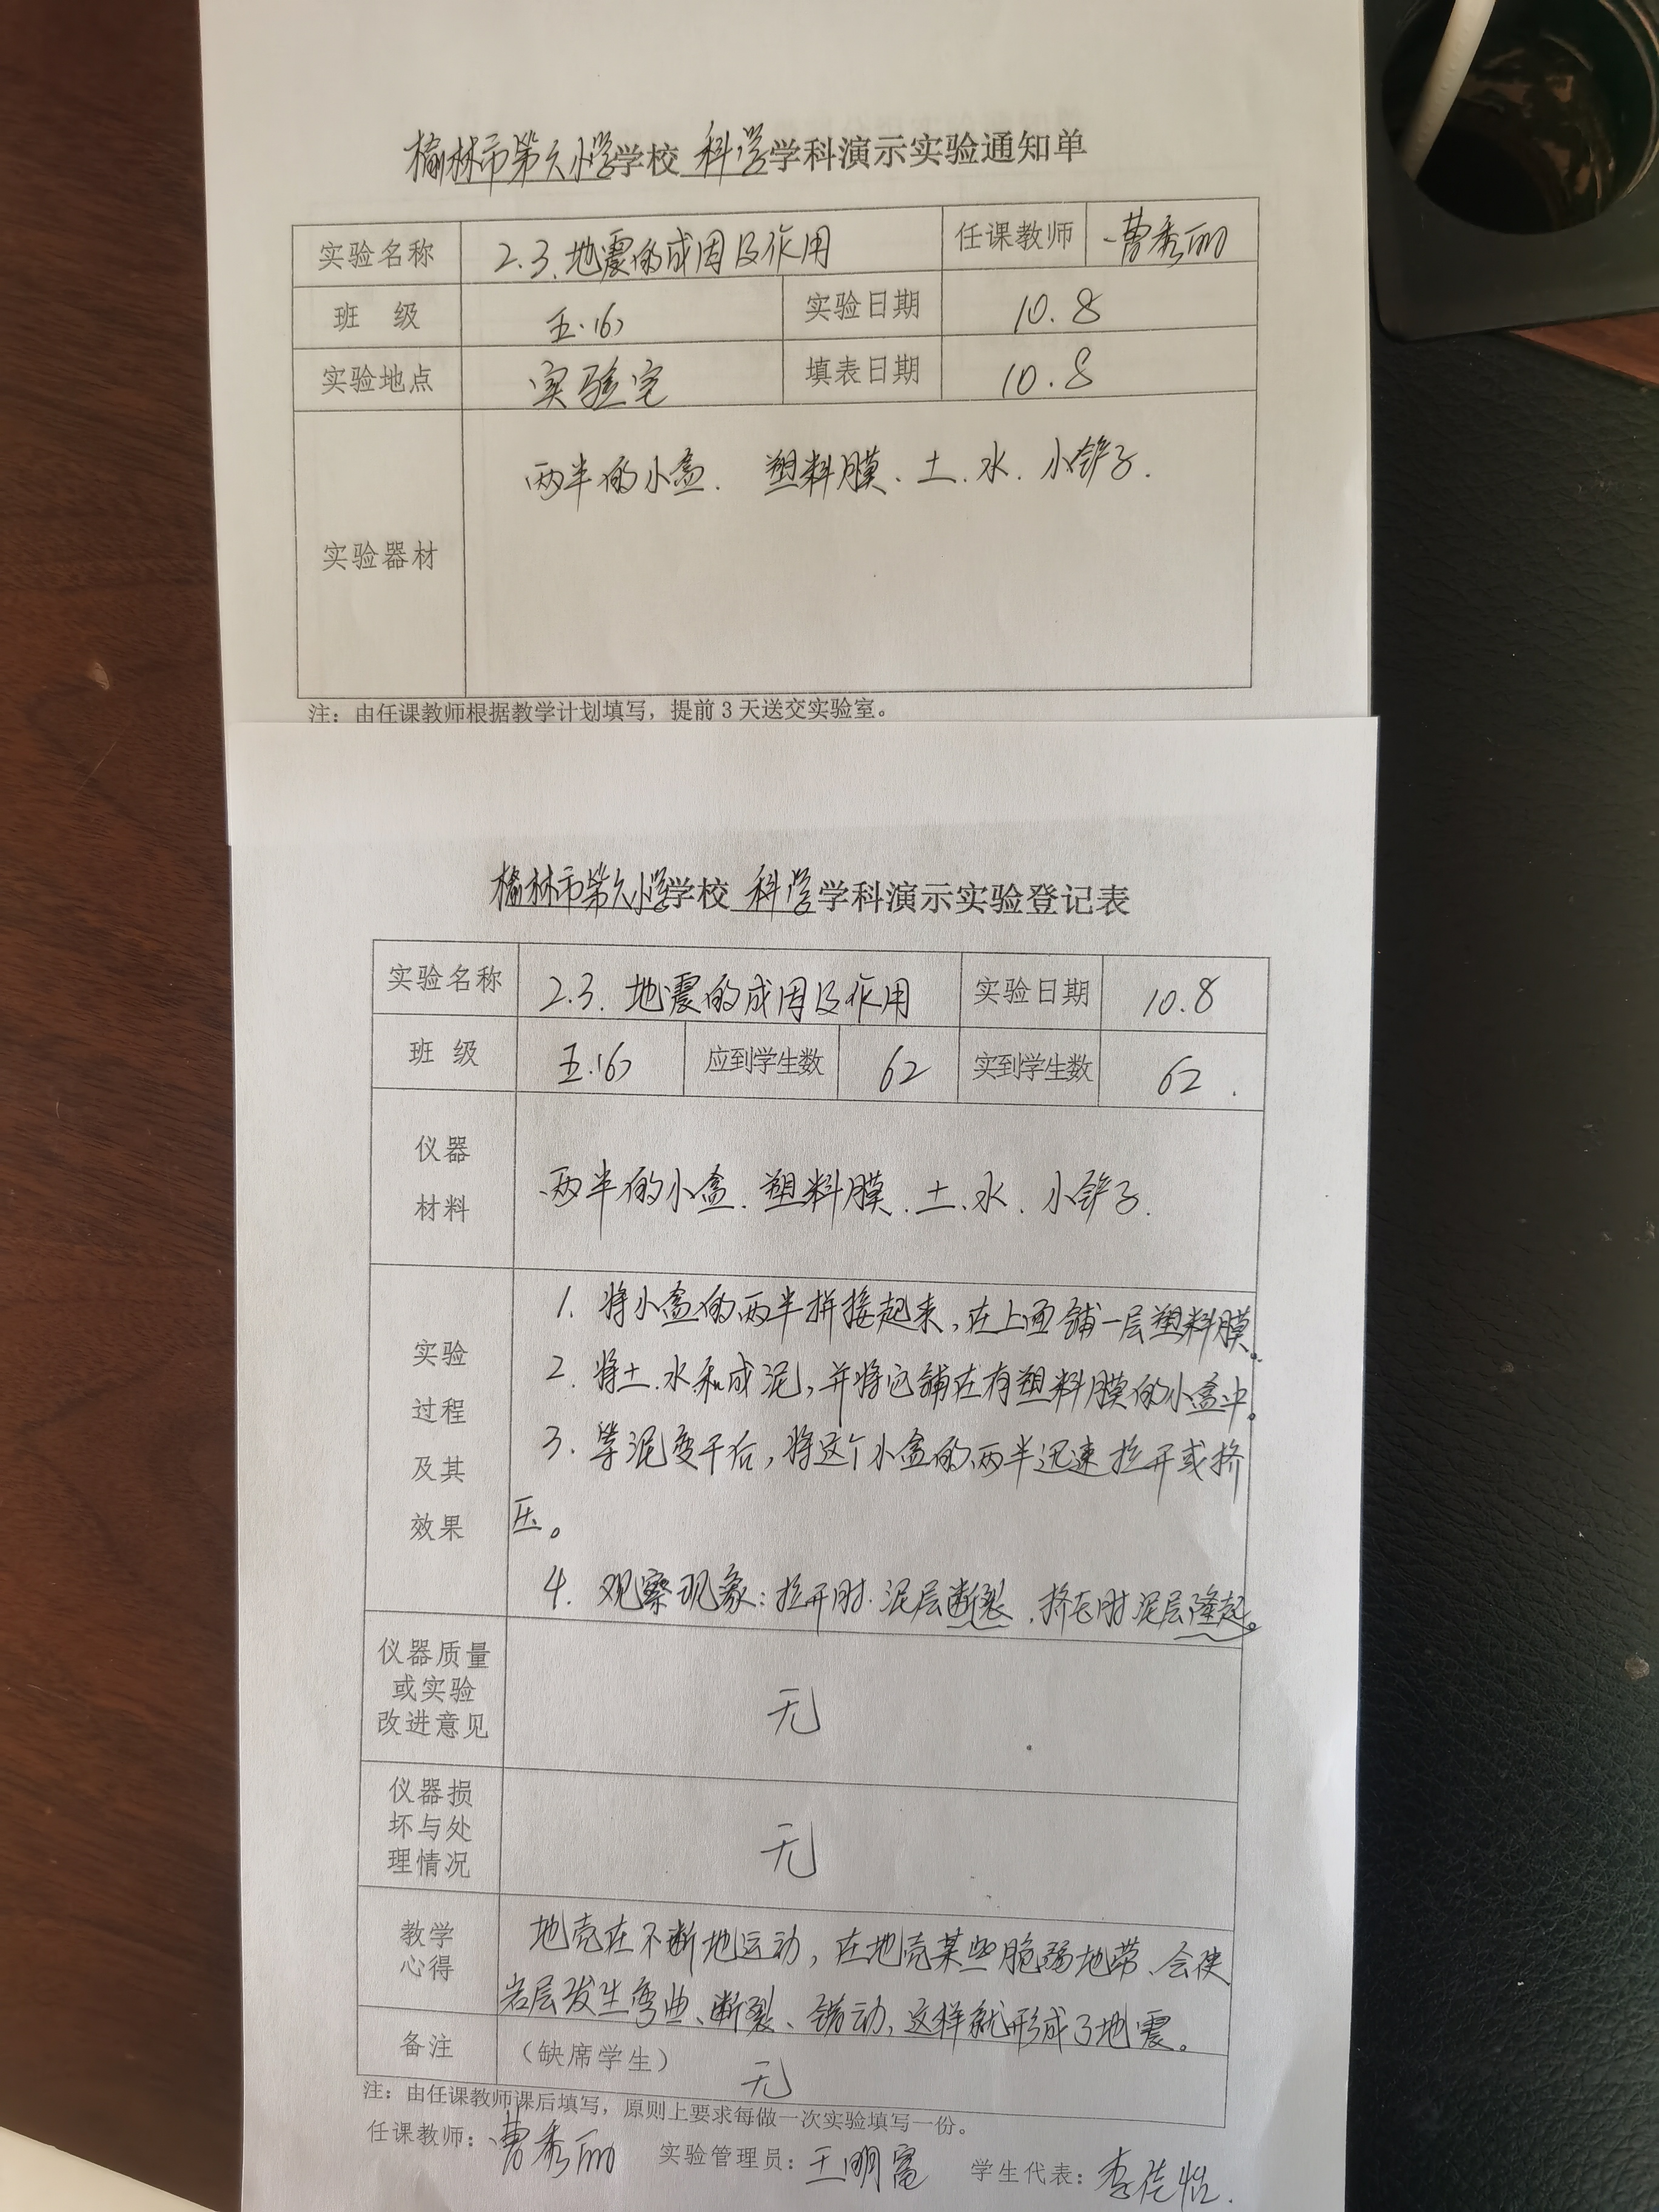 榆林市第六小学学校 科学学科演示实验通知单
实验名称 2.3.地震的成因及作用 任课教师 曹秀丽
班 级 五.(6) 实验日期 10.8
实验地点 实验室 填表日期 10.8
实验器材 两半的小盒. 塑料膜、土.水. 小铲子.
注：由任课教师根据教学计划填写，提前 3 天送交实验室。
榆林市第六小学学校 科学学科演示实验登记表
实验名称 2.3. 地震的成因及作用 实验日期 10.8
班 级 五.(6) 应到学生数 62 实到学生数 62.
仪器
材料
两半的小盒. 塑料膜.土.水. 小铲子.
实验
过程
及其
效果
1. 将小盒的两半拼接起来，在上面铺一层塑料膜。
2. 将土.水和成泥，并将它铺在有塑料膜的小盒中。
3. 等泥变干后，将这个小盒的两半迅速拉开或挤
压。
4. 观察现象：拉开时.泥层断裂.挤压时泥层隆起。
仪器质量
或实验
改进意见
无
仪器损
坏与处
理情况
无
教学
心得
地壳在不断地运动，在地壳某些脆弱地带、会使
岩层发生弯曲、断裂、错动，这样就形成了地震。
备注 （缺席学生） 无
注：由任课教师课后填写，原则上要求每做一次实验填写一份。
任课教师：曹秀丽 实验管理员：王明富 学生代表：李佳怡.